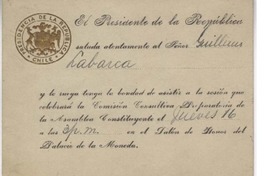 PRESIDENCIA DE LA REPUBLICA
CHILE
El Presidente de la República
saluda atentamente al Señor Guillermo
Labarca
y le ruega tenga la bondad de asistir a la sesión que
celebrará la Comisión Consultiva Preparatoria de
la Asamblea Constituyente el jueves 16
a las 3 p.m. en el Salón de Honor del
Palacio de la Moneda.